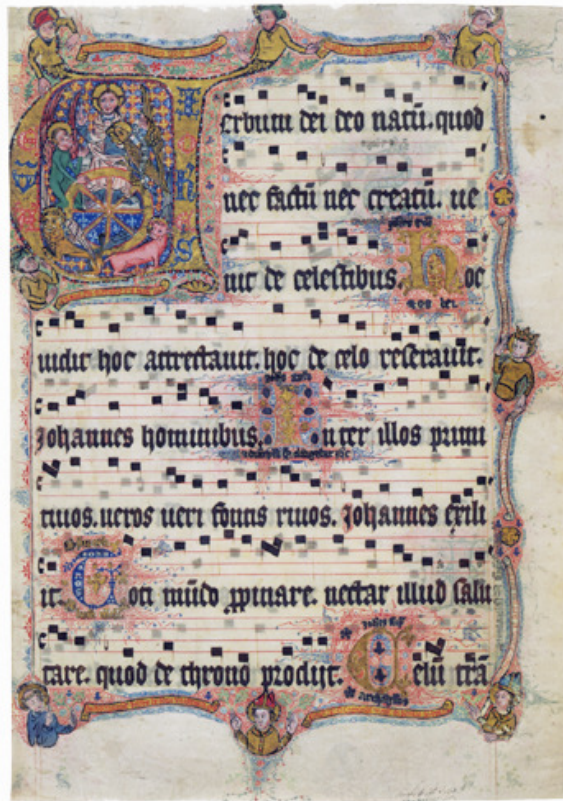 Verbum dei deo natū. quod
nec factū nec creatū. ue
nit de celestibus. Hoc
uidit hoc attrectauit. hoc de celo reserauit.
Johannes hominibus. Inter illos primi
tiuos. ueros ueri fontis riuos. Johannes exili
it. Toti mūdo ꝓpinare. nectar illud salu
tare. quod de throno prodijt. Celū trās